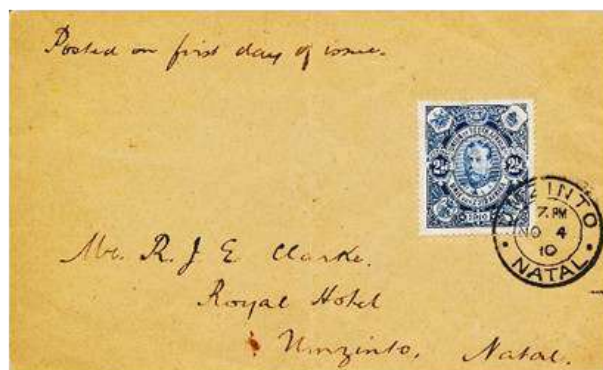 Posted on first day of issue.
2½ 2½
1910
UMZINTO
7. PM
NO 4
10
NATAL
Mr. R. J. E. Clarke.
Royal Hotel
Umzinto, Natal.